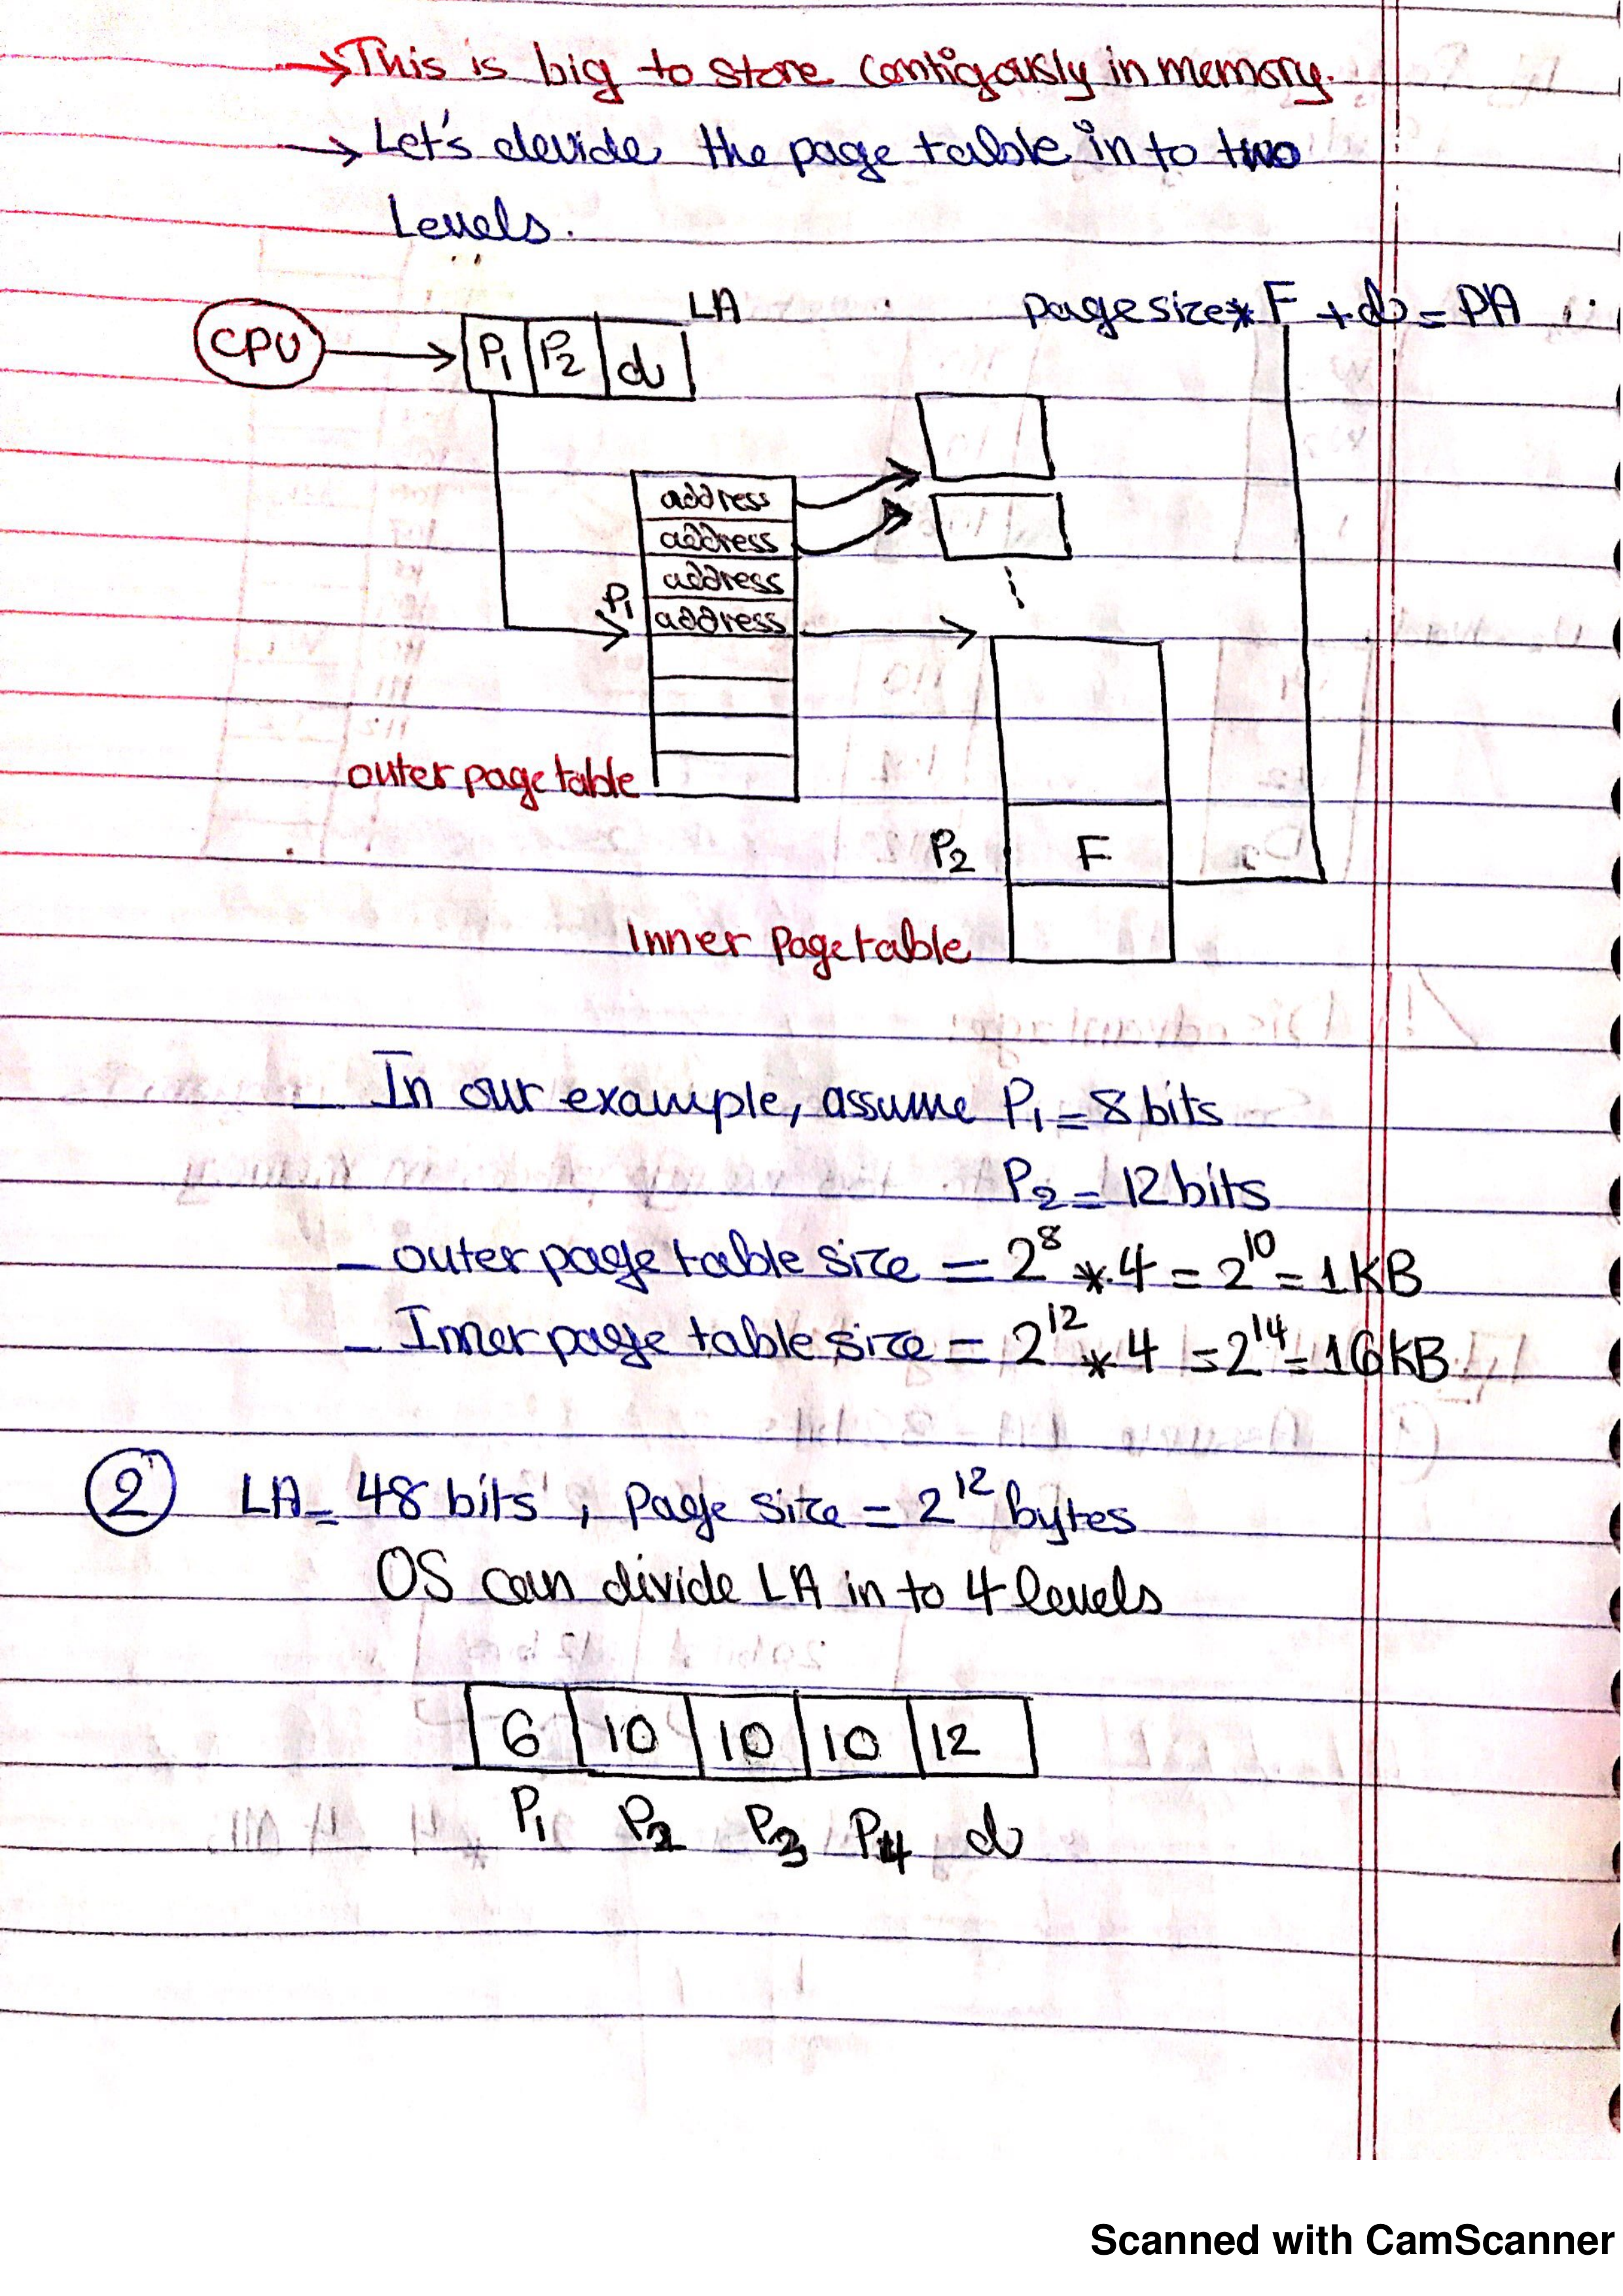 → This is big to store contigously in memory.
→ Let's devide the page table in to two
Levels.
CPU → P₁ P₂ d LA
Pagesize * F + d = PA
address
address
address
P₁ address
outer page table
P₂ F
Inner Page table
_ In our example, assume P₁ = 8 bits
P₂ = 12 bits
_ outer page table size = 2⁸ * 4 = 2¹⁰ = 1KB
_ Inner page table size = 2¹² * 4 = 2¹⁴ = 16KB
② LA = 48 bits, Page size = 2¹² bytes
OS can divide LA in to 4 levels
6 10 10 10 12
P₁ P₂ P₃ P₄ d
Scanned with CamScanner